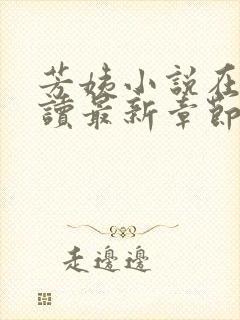 芳姨小說在
讀最新章節
走邊邊